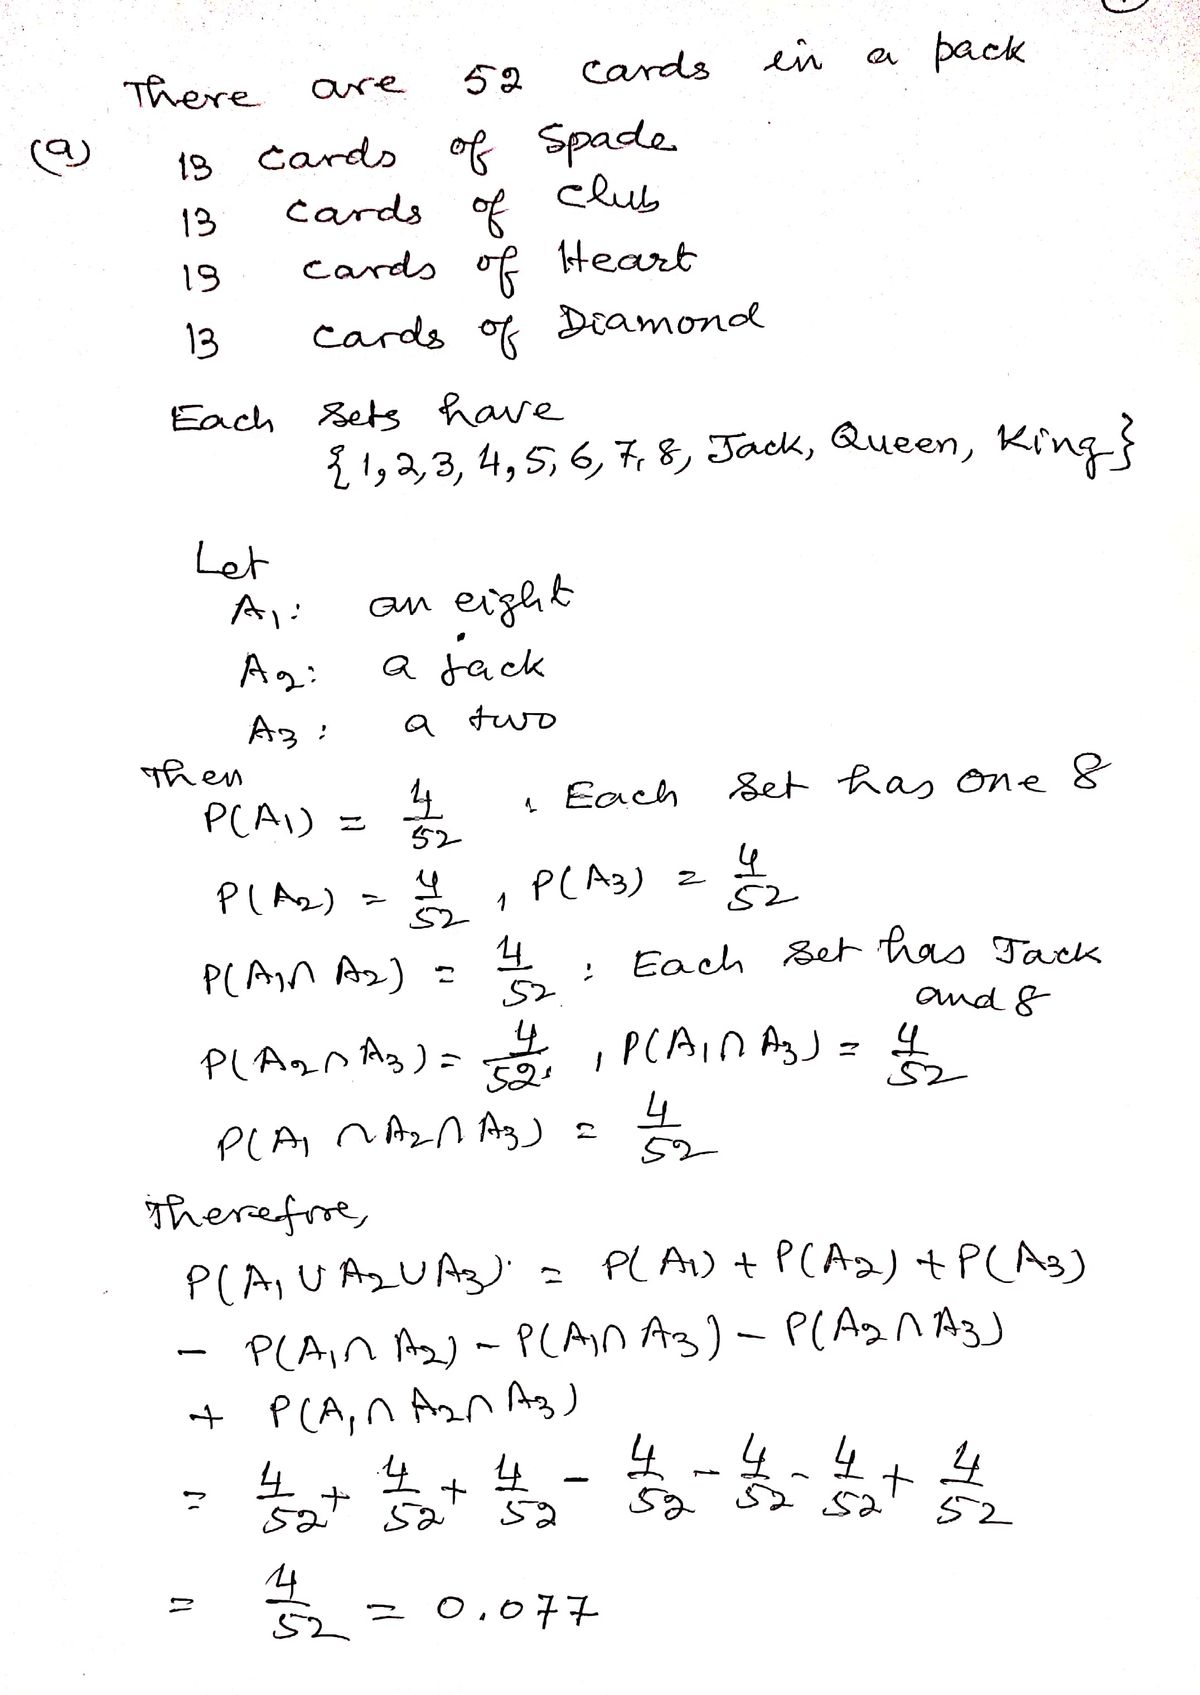 There are 52 cards in a pack
(a) 13 cards of Spade
13 cards of Club
13 cards of Heart
13 cards of Diamond
Each sets have
{1, 2, 3, 4, 5, 6, 7, 8, Jack, Queen, King}
Let
A1: an eight
A2: a jack
A3: a two
Then
P(A1) = 4/52 , Each set has one 8
P(A2) = 4/52 , P(A3) = 4/52
P(A1 ∩ A2) = 4/52 : Each set has Jack
and 8
P(A2 ∩ A3) = 4/52 , P(A1 ∩ A3) = 4/52
P(A1 ∩ A2 ∩ A3) = 4/52
Therefore,
P(A1 ∪ A2 ∪ A3) = P(A1) + P(A2) + P(A3)
- P(A1 ∩ A2) - P(A1 ∩ A3) - P(A2 ∩ A3)
+ P(A1 ∩ A2 ∩ A3)
= 4/52 + 4/52 + 4/52 - 4/52 - 4/52 - 4/52 + 4/52
= 4/52 = 0.077